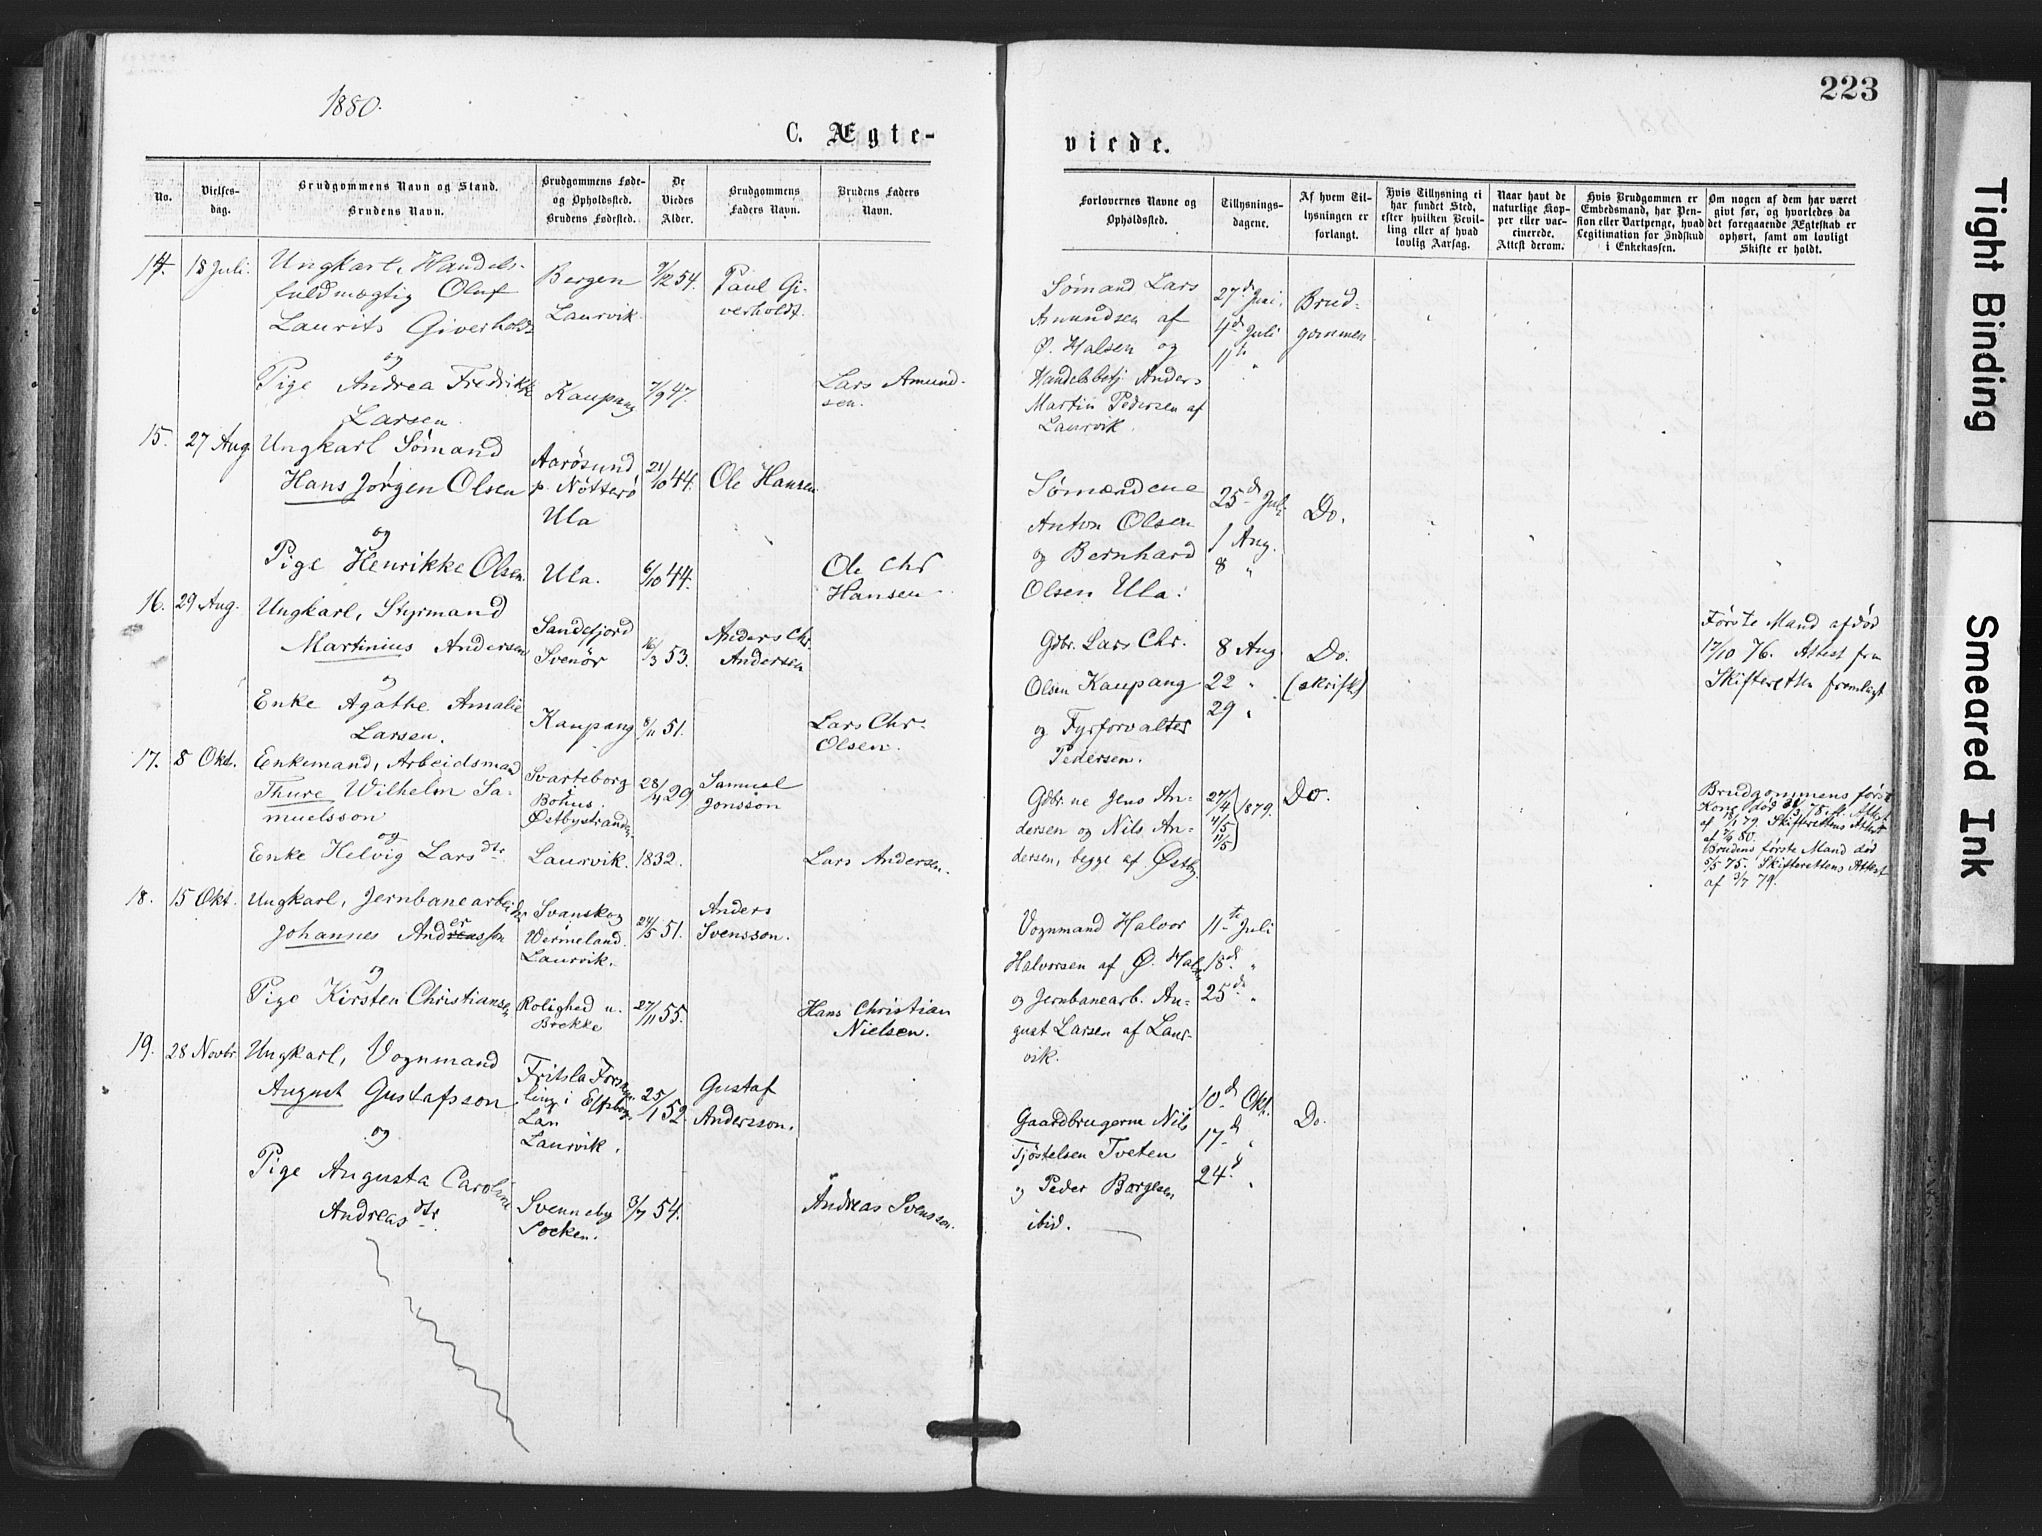 1880.
223
C. Ægte-
viede.
No.
Vielses-
dag.
Brudgommens Navn og Stand.
Brudens Navn.
Brudgommens Føde-
og Opholdssted.
Brudens Fødested.
De
Viedes
Alder.
Brudgommens
Faders Navn.
Brudens Faders
Navn.
Forlovernes Navne og
Opholdssted.
Tillysnings-
dagene.
Af hvem Til-
lysningen er
forlangt.
Hvis Tillysning ei
har fundet Sted,
efter hvilken Bevil-
ling eller af hvad
lovlig Aarsag.
Naar havt de
naturlige Kop-
per eller vac-
cinerede.
Attest derom.
Hvis Brudgommen er
Embedsmand, har Pen-
sion eller Vartpenge, hvad
Legitimation for Indskud
i Enkekassen.
Om nogen af dem har været
givt før, og hvorledes da
det foregaaende Ægteskab er
ophørt, samt om lovligt
Skifte er holdt.
14. 18 Juli.
Ungkarl, Handels-
fuldmægtig Oluf
Laurits Giverholdt
og
Pige Andrea Fredrikke
Larsen.
Bergen
Laurvik.
Kaupang
9/12 54.
7/9 47.
Paul Gi-
verholdt.
Lars Amund-
sen.
Sømand Lars
Amundsen af
Ø. Halsen og
Handelsbetj. Anders
Martin Pedersen af
Laurvik.
27d Juni.
4d Juli
11t "
Brud-
gommen
15. 27 Aug.
Ungkarl Sømand
Hans Jørgen Olsen
og
Pige Henrikke Olsen.
Aarøsund
p. Nötterö
Ula
Ula.
21/10 44.
6/10 44.
Ole Hansen
Ole Chr
Hansen.
Sømændene
Anton Olsen
og Bernhard
Olsen Ula.
25d Juli
1 Aug.
8 "
Do.
16. 29 Aug.
Ungkarl, Styrmand
Martinius Andersen
og
Enke Agathe Amalie
Larsen.
Sandefjord
Svenör
Kaupang
16/3 53.
8/11 51.
Anders Chr.
Andersen
Lars Chr.
Olsen.
Gdbr. Lars Chr.
Olsen Kaupang
og Fyrforvalter
Pedersen.
8 Aug
22 "
29 "
Do.
(skriftl)
Første Mand afdød
17/10 76. Attest fra
Skifteretten fremlagt
17. 8 Okt.
Enkemand, Arbeidsmand
Thure Wilhelm Sa-
muelsson
og
Enke Helvig Larsdtr
Svarteborg
Bohus.
Østbystranden
Laurvik.
28/4 29
1832.
Samuel
Jonsson
Lars Andersen.
Gdbr.ne Jens An-
dersen og Nils An-
dersen, begge af Østby.
27/4
4/5
11/5
1879.
Do.
Brudgommens første
Kone død
Skifterettens Attest
Brudens første Mand død
5/5 75. Skifterettens Attest
af 3/7 79.
18. 15 Okt.
Ungkarl, Jernbanearbeider
Johannes Andersson
og
Pige Kirsten Christiansen
Svanskog
Wermeland.
Laurvik.
Rolighed u.
Brekke
24/5 51.
27/11 55.
Anders
Svensson.
Hans Christian
Nielsen.
Vognmand Halvor
Halvorsen af Ø. Halsen
og Jernbanearb. Au-
gust Larsen af Laur-
vik.
11te Juli
18d "
25de "
19. 28 Novbr.
Ungkarl, Vognmand
August Gustafsson
og
Pige Augusta Caroline
Andreasdtr.
Fritsla
ling i Elfsborgs
Län
Laurvik.
Svenneby
Socken.
25/1 52.
3/7 54.
Gustaf
Andersson.
Andreas Svensson.
Gaardbrugerne Nils
Tjøstelsen Tveten
og Peder Borgesen
ibid.
10d Okt.
17d "
24d "
Do.
Tight Binding
Smeared Ink